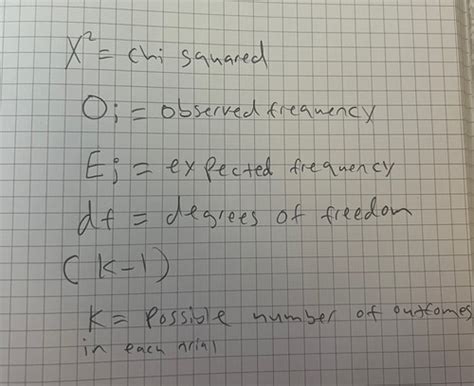 X² = chi squared
Oi = observed frequency
Ei = expected frequency
df = degrees of freedom
(k-1)
K = Possible number of outcomes
in each trial